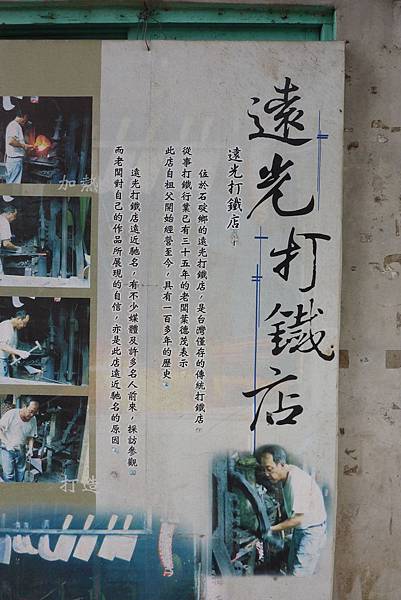 遠光打鐵店
遠光打鐵店
位於石碇鄉的遠光打鐵店，是台灣僅存的傳統打鐵店
從事打鐵行業已有三十五年的老闆葉德茂表示
此店自祖父開始經營至今，具有一百多年的歷史
遠光打鐵店遠近馳名，有不少媒體及許多名人前來，採訪參觀
而老闆對自己的作品所展現的自信，亦是此店遠近馳名的原因
加熱
打造